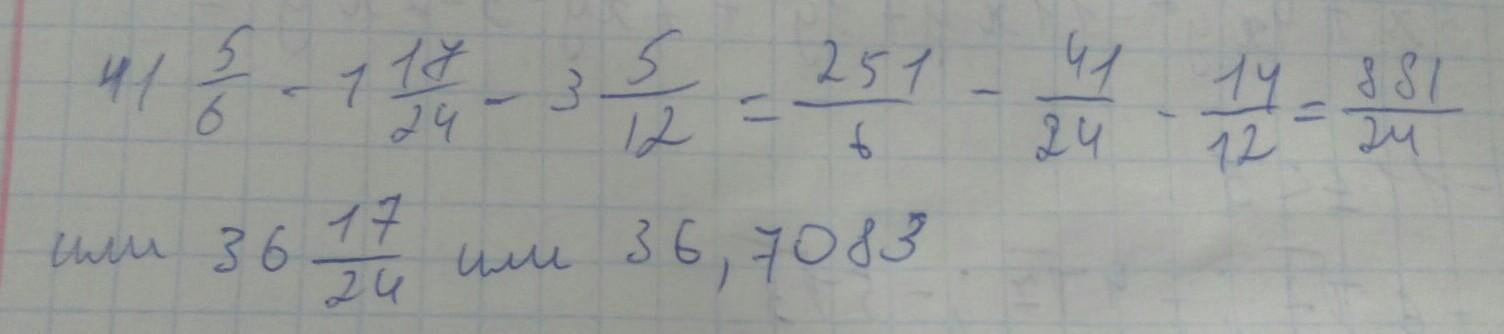 41 5/6 - 1 17/24 - 3 5/12 = 251/6 - 41/24 - 14/12 = 881/24
или 36 17/24 или 36,7083